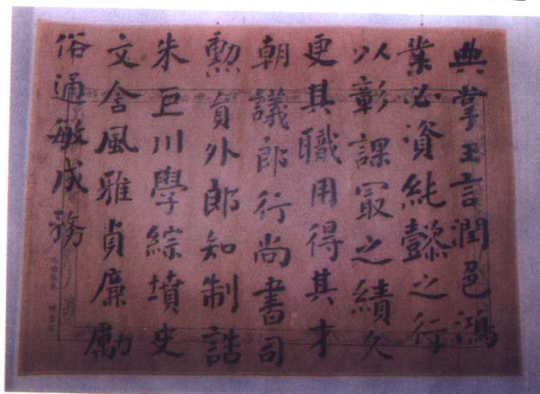 典掌王言潤色鴻
業必資純懿之行
以彰課㝡之績久
更其職用得其才
朝議郎行尚書司
勳員外郎知制誥
朱巨川學綜墳史
文含風雅貞廉勵
俗通敏成務